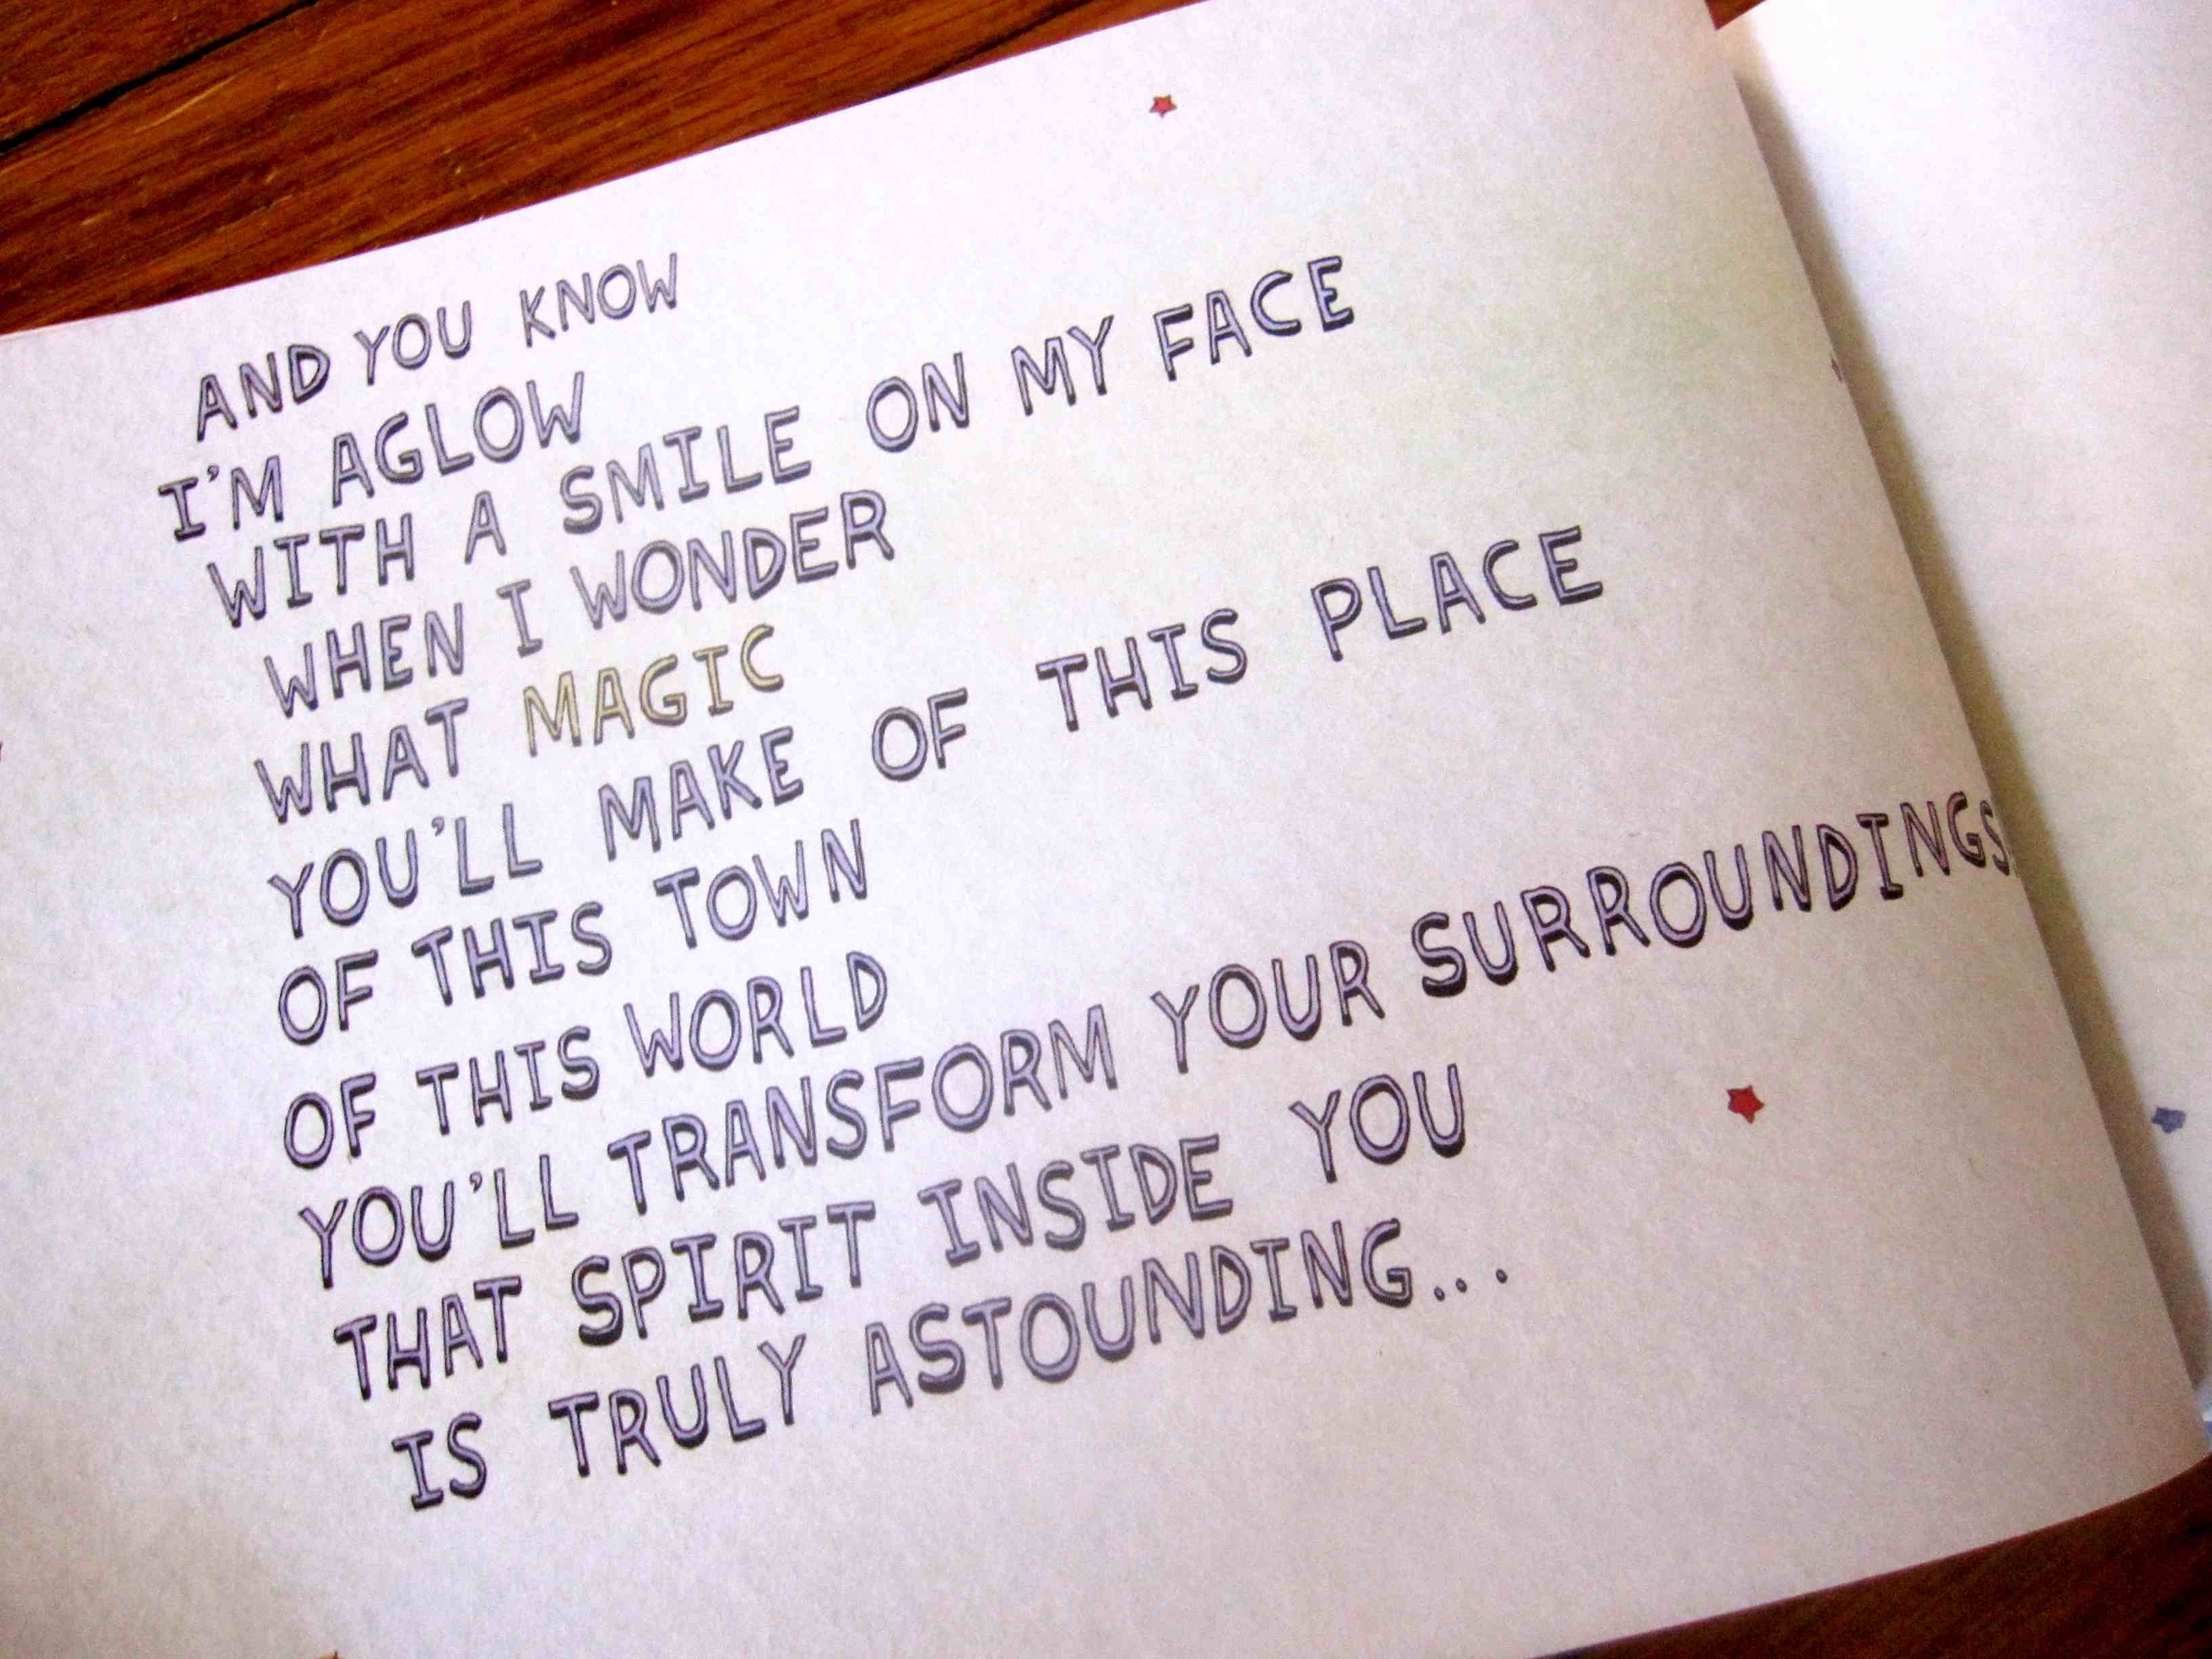 AND YOU KNOW
I'M AGLOW
WITH A SMILE ON MY FACE
WHEN I WONDER
WHAT MAGIC
YOU'LL MAKE OF THIS PLACE
OF THIS TOWN
OF THIS WORLD
YOU'LL TRANSFORM YOUR SURROUNDINGS
THAT SPIRIT INSIDE YOU
IS TRULY ASTOUNDING...